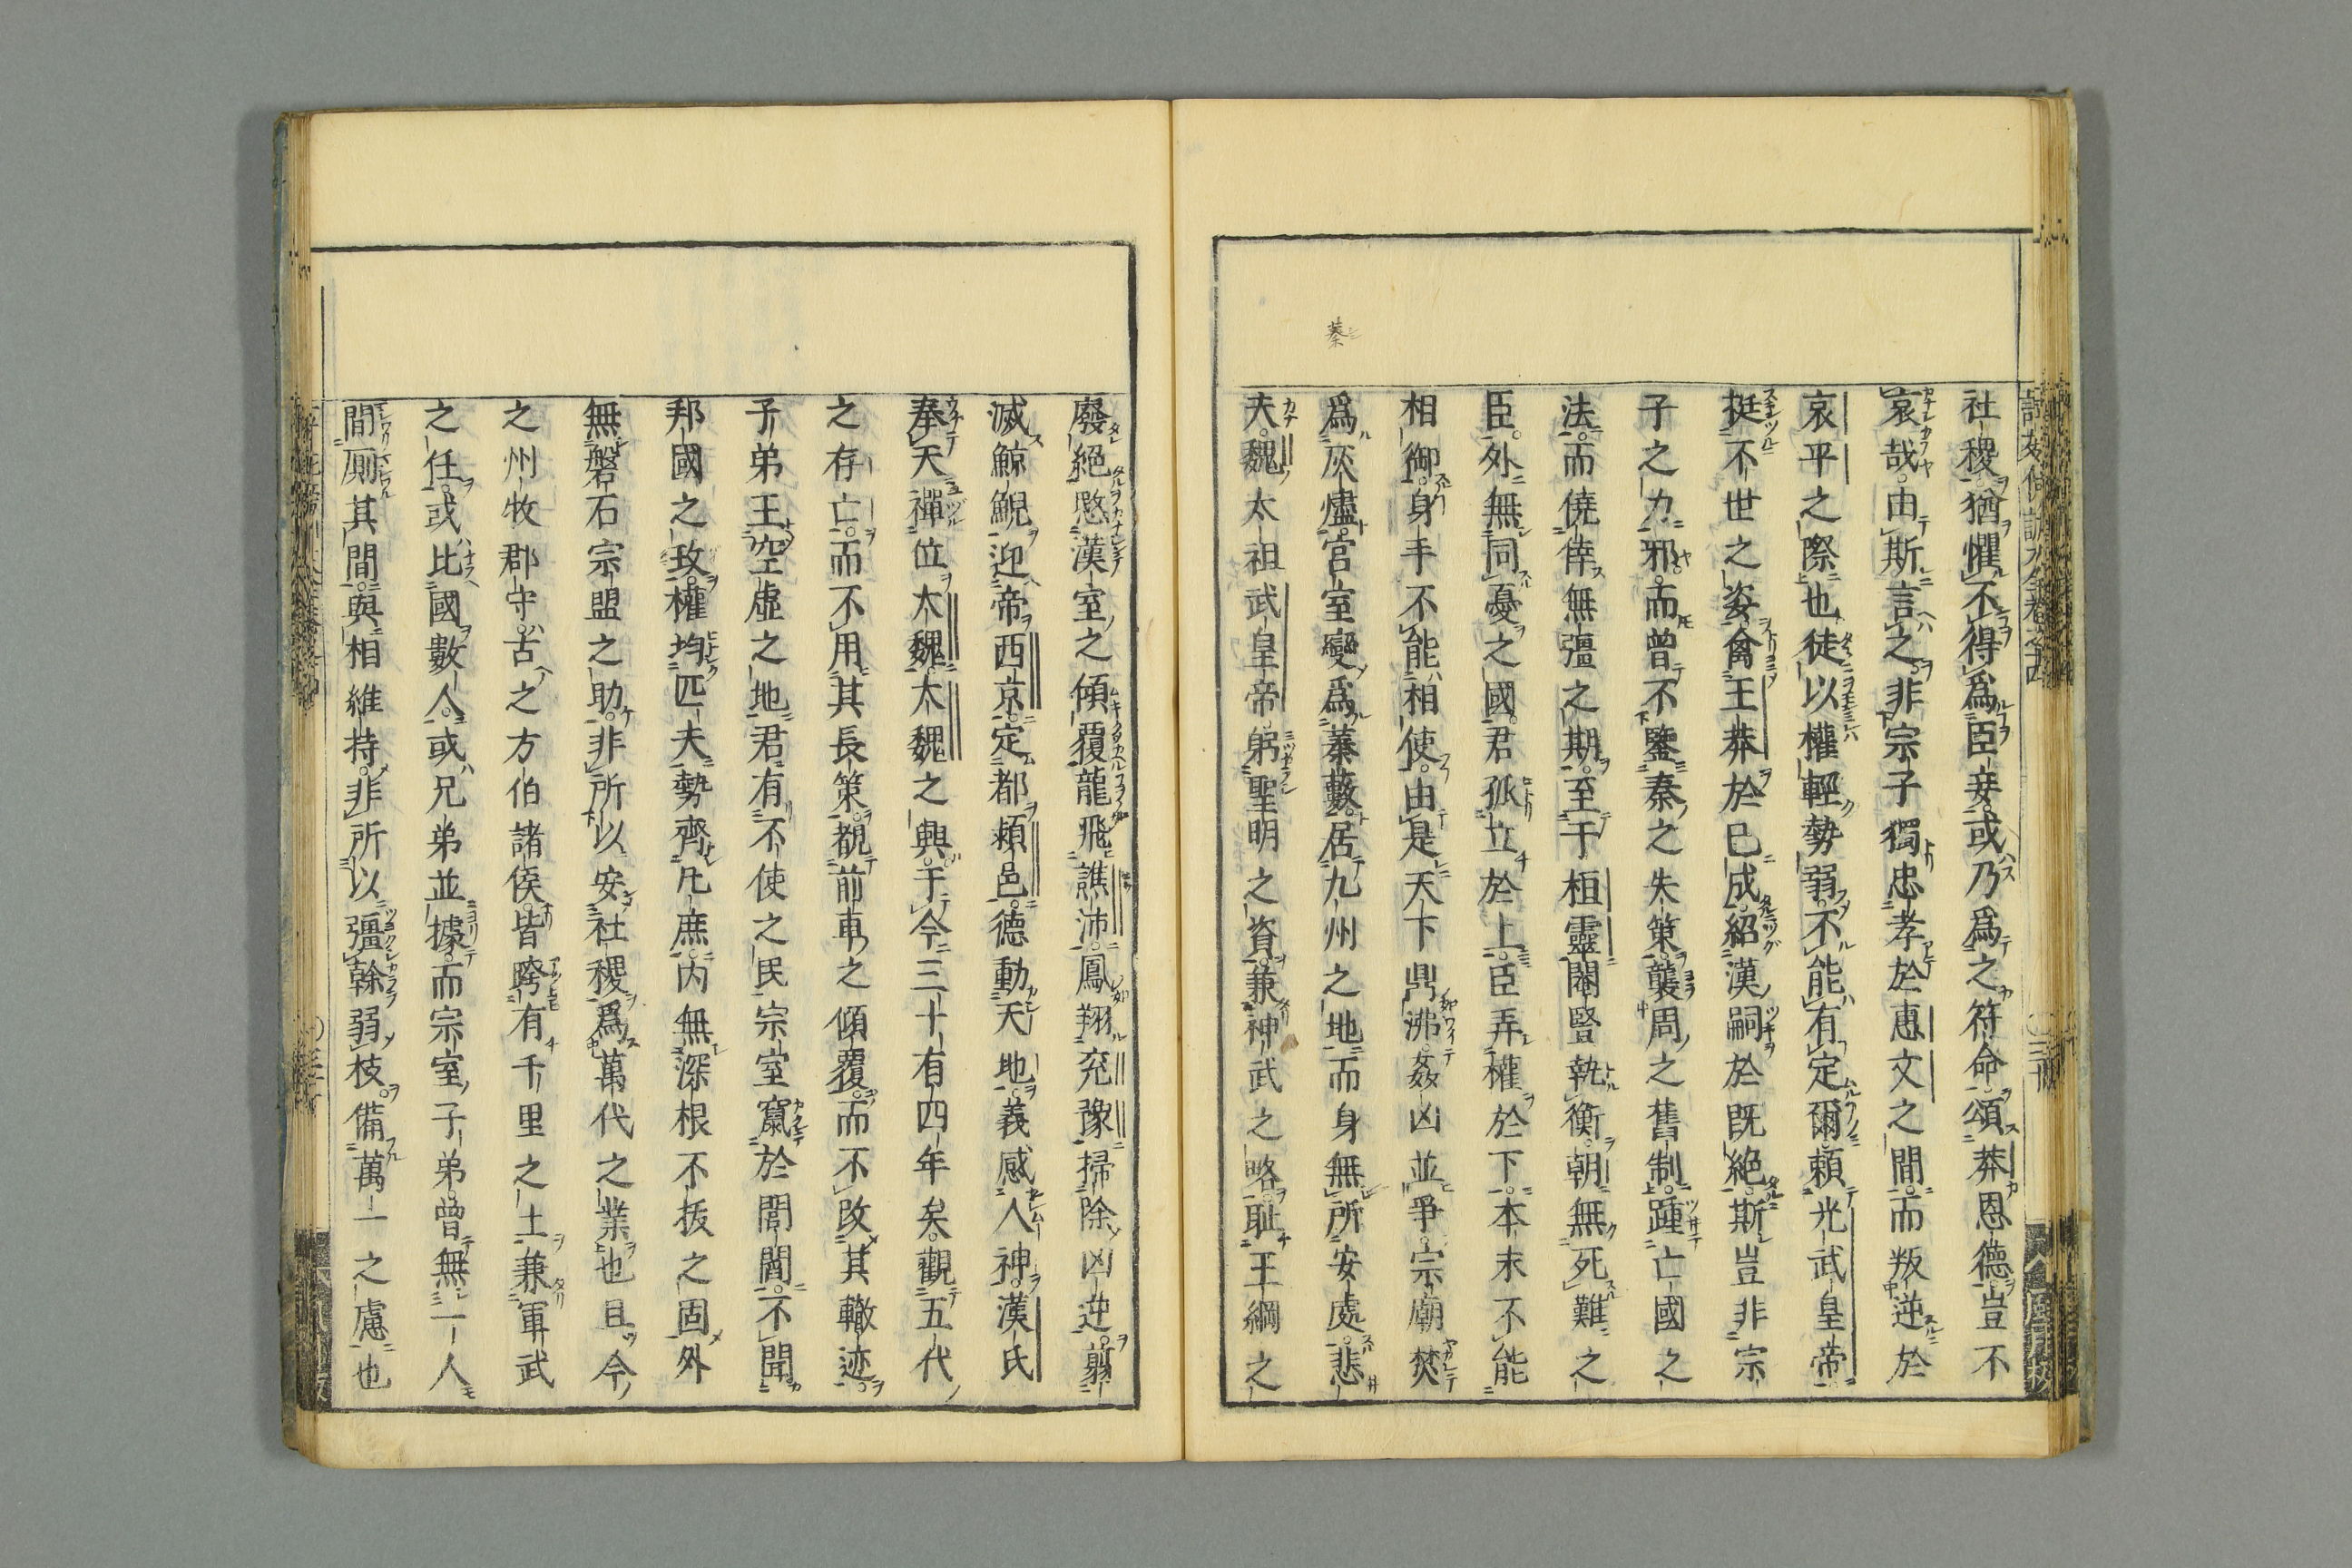 蓁
社稷猶懼不得爲臣妾或乃爲之符命頌莽恩德豈不
哀哉由斯言之非宗子獨忠孝於惠文之間而叛逆於
哀平之際也徒以權輕勢弱不能有定爾賴光武皇帝
挺不世之姿禽王莽於已成紹漢嗣於既絕斯豈非宗
子之力邪而曾不鑒秦之失策襲周之舊制踵亡國之
法而僥倖無彊之期至于桓靈閹豎執衡朝無死難之
臣外無同憂之國君孤立於上臣弄權於下本末不能
相御身手不能相使由是天下鼎沸姦凶並爭宗廟焚
爲灰燼宮室變爲蓁藪居九州之地而身無所安處悲
夫魏太祖武皇帝躬聖明之資兼神武之略耻王綱之
廢絕愍漢室之傾覆龍飛譙沛鳳翔兗豫掃除凶逆翦
滅鯨鯢迎帝西京定都潁邑德動天地義感人神漢氏
奉天禪位大魏大魏之興于今三十有四年矣觀五代
之存亡而不用其長策覩前車之傾覆而不改其轍迹
子弟王空虛之地君有不使之民宗室竄於閭閻不聞
邦國之政權均匹夫勢齊凡庶内無深根不拔之固外
無磐石宗盟之助非所以安社稷爲萬代之業也且今
之州牧郡守古之方伯諸侯皆跨有千里之土兼軍武
之任或比國數人或兄弟並據而宗室子弟曾無一人
間厠其間與相維持非所以彊幹弱枝備萬一之慮也